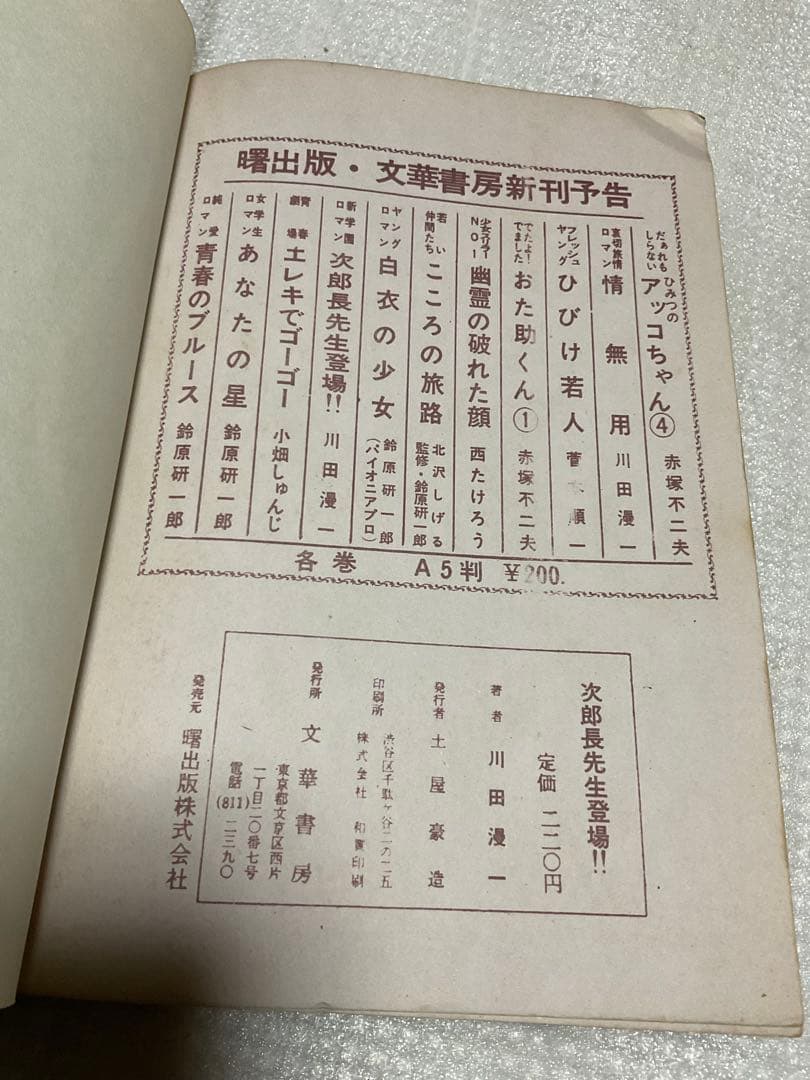 曙出版・文華書房新刊予告
だぁれもしらない ひみつのアッコちゃん④ 赤塚不二夫
裏切旅情ロマン 情無用 川田漫一
フレッシュヤング ひびけ若人 菅 順一
でたよ!でました おた助くん① 赤塚不二夫
少女スリラーNO1 幽霊の破れた顔 西たけろう
若い仲間たち こころの旅路 北沢しげる 監修・鈴原研一郎
ヤングロマン 白衣の少女 鈴原研一郎(パイオニアプロ)
新学園ロマン 次郎長先生登場!! 川田漫一
青春劇場 エレキでゴーゴー 小畑しゅんじ
女学生ロマン あなたの星 鈴原研一郎
純愛ロマン 青春のブルース 鈴原研一郎
各巻 A5判 ¥200.
次郎長先生登場!!
定価 二二〇円
著者 川田漫一
発行者 土屋豪造
渋谷区千駄ヶ谷二の二五
印刷所 株式会社 和 印刷
発行所 文華書房
東京都文京区西片
一丁目二〇番七号
電話(811)二三九〇
発売元 曙出版株式会社